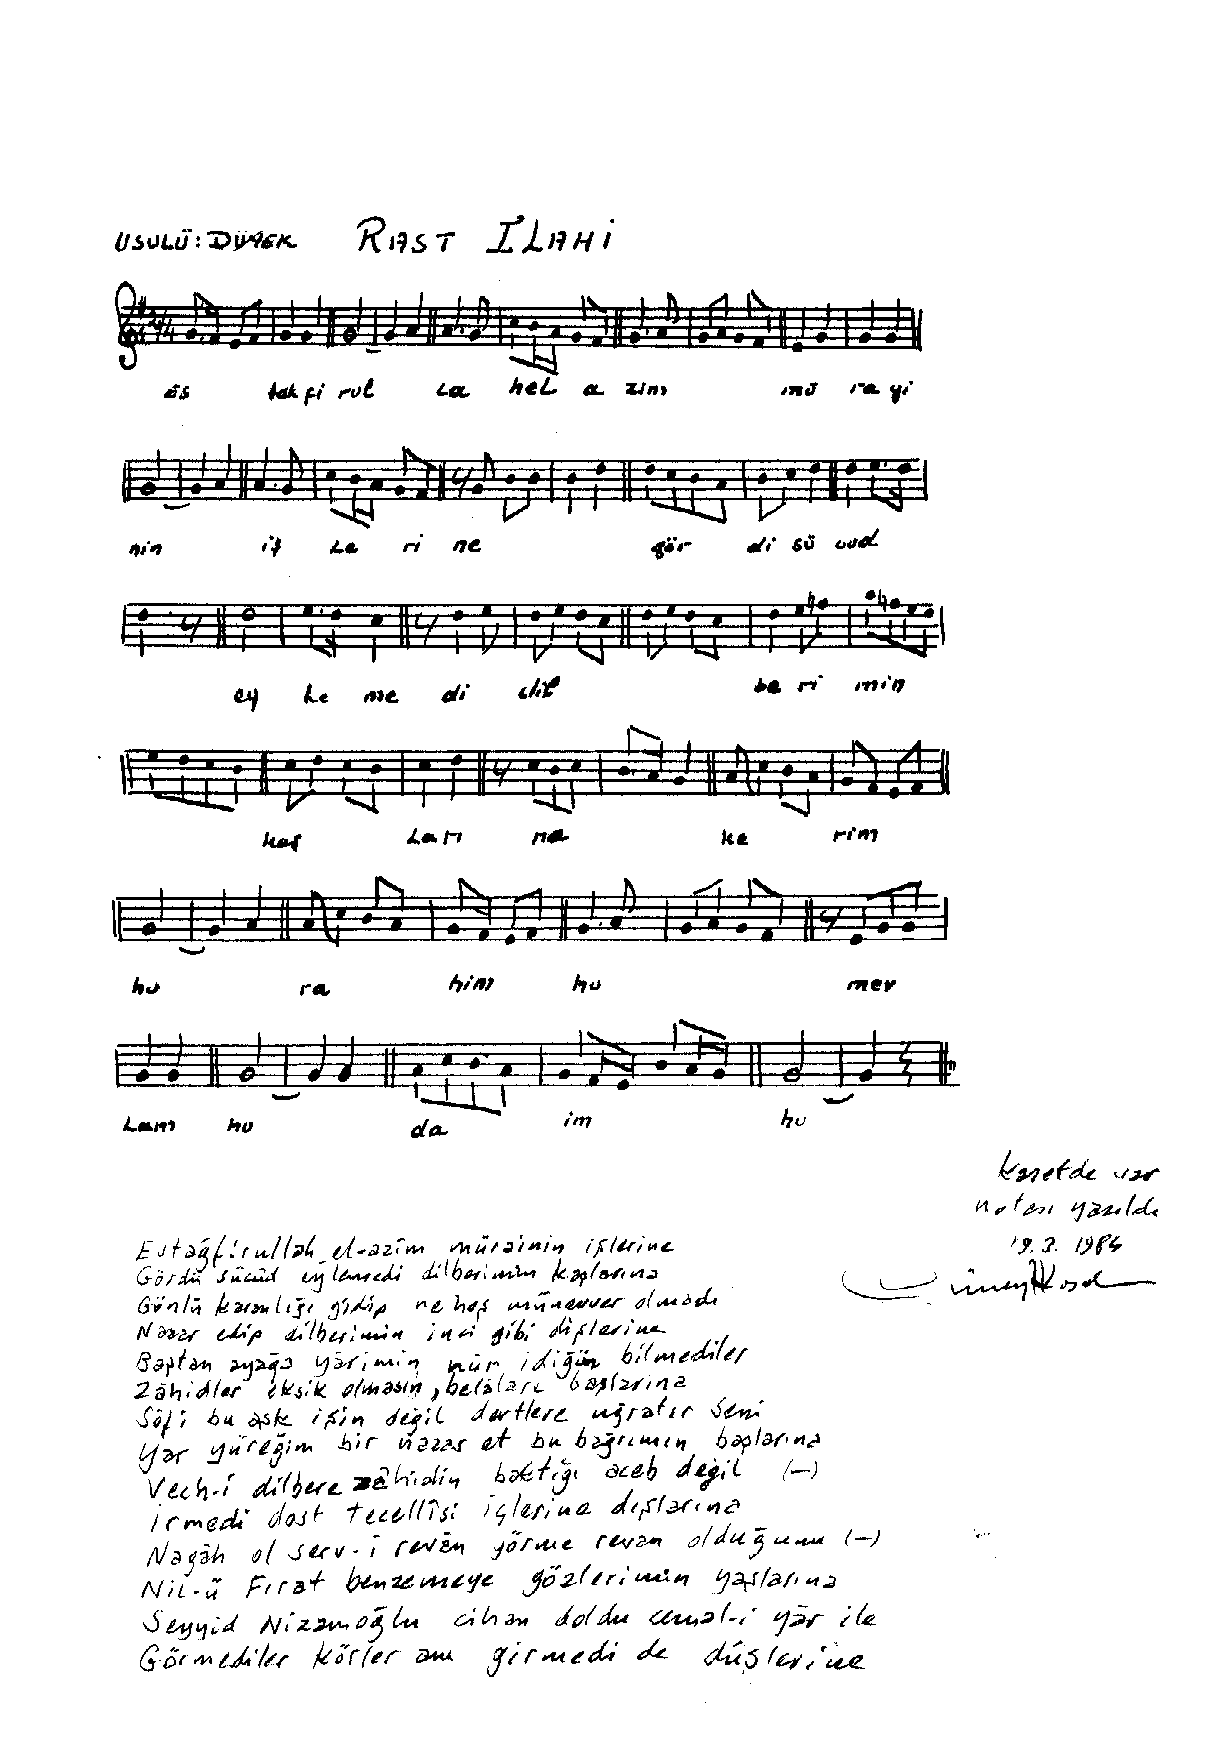 USULÜ: DÜYEK RAST ILAHi
es tak fi rul La heL a zim mü ra yi
nin iş Le ri ne gör di sü cud
ey Le me di dil be ri min
kaş Lar na ke rim
hu ra him hu mev
Lam hu da im hu
Kasetde var
notası yazıldı
19.3.1984
Estağfirullah el-azîm mürainin işlerine
Gördü sücûd eylemedi dilberimin kaşlarına
Gönlü karanlığı gidip ne hoş münevver olmadı
Nazar edip dilberimin inci gibi dişlerine
Baştan ayağa yârimin nûr idiğün bilmediler
Zâhidler eksik olmasın, belâları başlarına
Sôfi bu aşk işin değil dertlere uğratır seni
Yar yüreğim bir nazar et bu bağrımın başlarına
Vech-i dilbere zâhidin baktığı aceb değil (—)
irmedi dost tecellîsi içlerine dışlarına
Nagâh ol serv-i revân görme revan olduğunu (—)
Nil-ü Fırat benzemeye gözlerimin yaşlarına
Seyyid Nizamoğlu cihan doldu cemal-i yâr ile
Görmediler körler anı girmedi de düşlerine